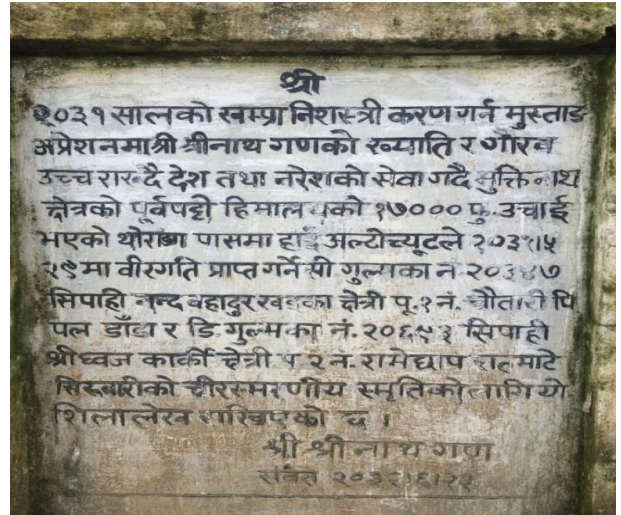 श्री
२०३१ सालको खम्पा निशस्त्री करण गर्न मुस्ताङ
अप्रेशनमा श्री श्रीनाथ गणको ख्याति र गौरब
उच्च राख्दै देश तथा नरेशको सेवा गर्दै मुक्तिनाथ
क्षेत्रको पूर्वपट्टी हिमालयको १७००० फु. उचाई
भएको थोराङ पासमा हाई अल्टीच्यूटले २०३१।५
२९ मा वीरगति प्राप्त गर्ने सी. गुल्मका नं २०३४७
सिपाही नन्द बहादुर खड्का क्षेत्री पू. १ नं. चौतारी पि
पल डाँडा र डि. गुल्मका नं. २०६९३ सिपाही
श्रीध्वज कार्की क्षेत्री पू २ नं. रामेछाप रातमाटे
सिस्नबारीको चीरस्मरणीय स्मृतिको लागि यो
शिलालेख राखिएको छ ।
श्री श्रीनाथ गण
संवत